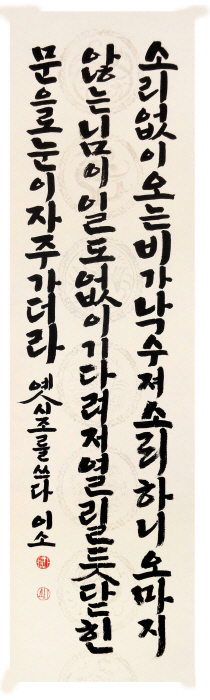 소리없이오는비가낙수져소리하니오마지
않는님이일도없이기다려져열릴듯닫힌
문으로눈이자주가더라 옛시조를쓰다 이소